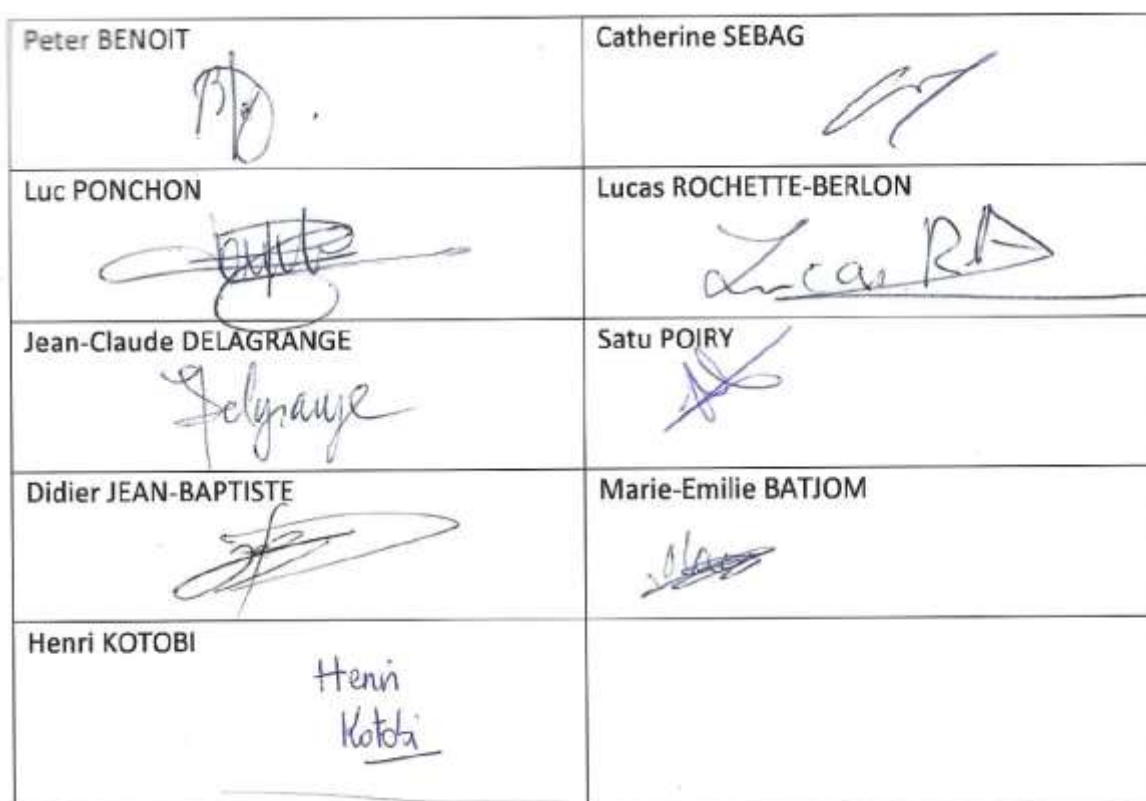 Peter BENOIT
Catherine SEBAG
Luc PONCHON
Lucas ROCHETTE-BERLON
Lucas RB
Jean-Claude DELAGRANGE
Delagrange
Satu POIRY
Didier JEAN-BAPTISTE
Marie-Emilie BATJOM
Henri KOTOBI
Henri
Kotobi